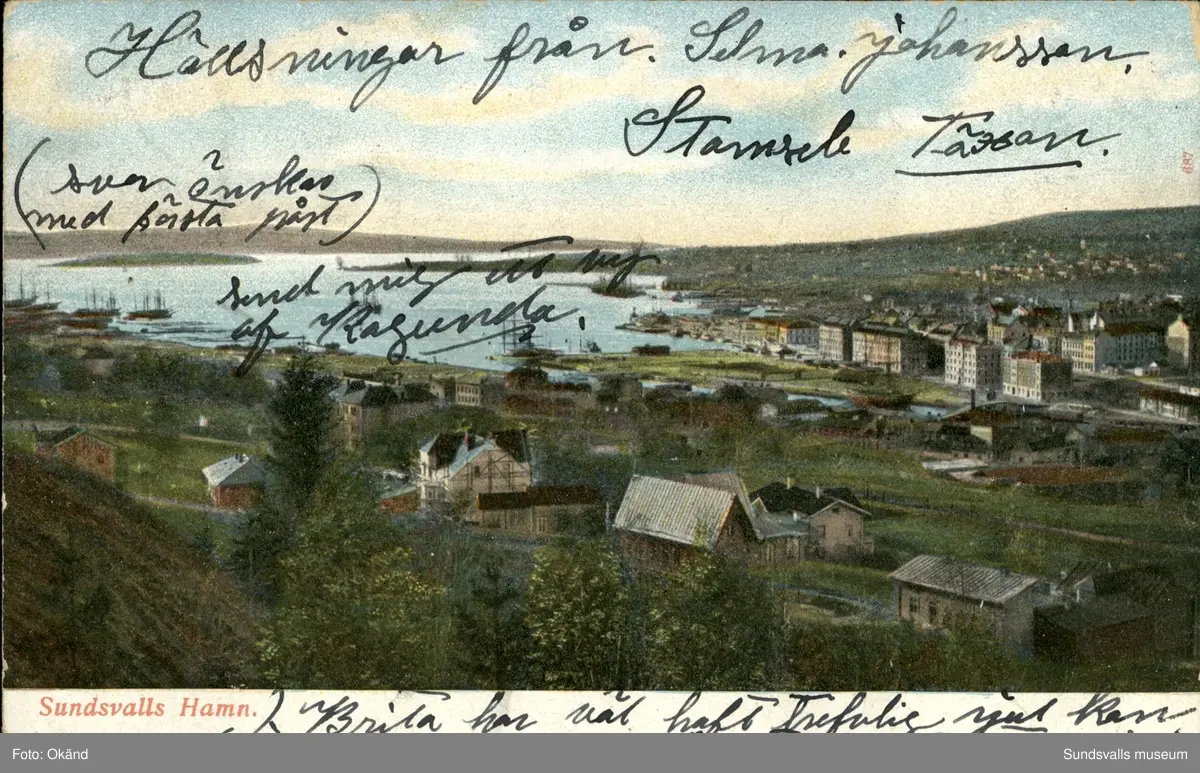 Hällsningar från. Selma. johansson.
Stamsele Tåssan.
(svar önskas
med första påst)
send mig ett vy
af Ragunda.
697
Sundsvalls Hamn.
Brita har väl haft Trefvlig jul kan
Foto: Okänd
Sundsvalls museum